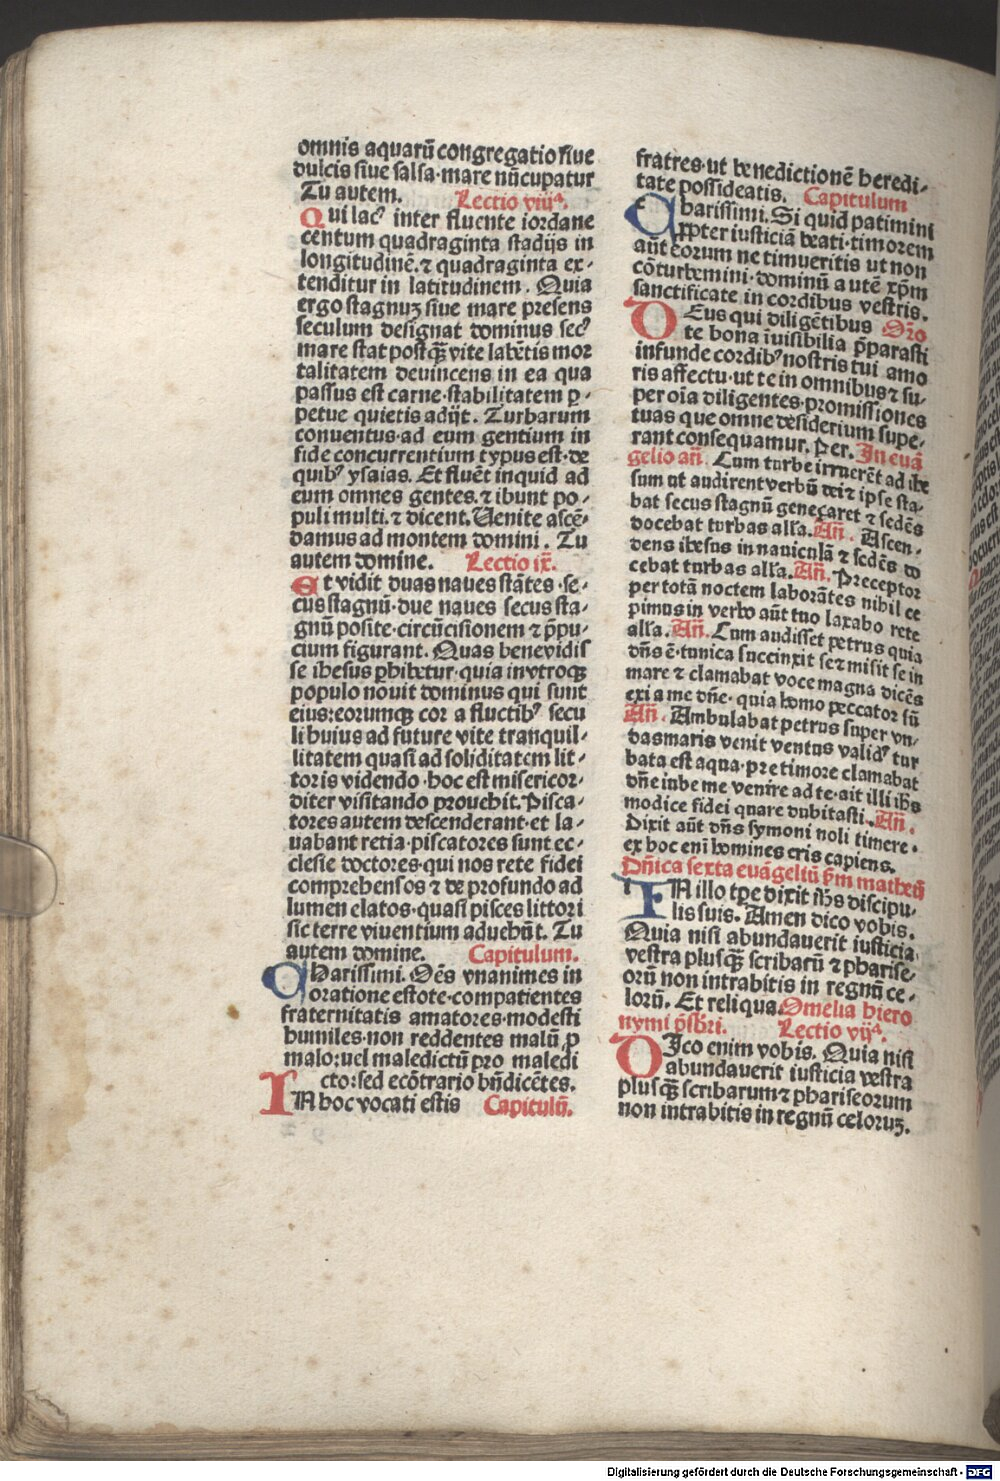 omnis aquarū congregatio siue
dulcis siue salsa·mare nūcupatur
Tu autem. Lectio viijª.
Qui lac⁹ inter fluente iordane
centum quadraginta stadijs in
longitudinē.⁊ quadraginta ex-
tenditur in latitudinem. Quia
ergo stagnuꝫ siue mare presens
seculum designat dominus sec⁹
mare stat postqꝫ̄ vite labētis mor
talitatem deuincens in ea qua
passus est carne·stabilitatem ꝑ-
petue quietis adijt. Turbarum
conuentus·ad eum gentium in
fide concurrentium typus est·de
quib⁹ ysaias. Et fluēt inquid ad
eum omnes gentes.⁊ ibunt po-
puli multi.⁊ dicent.Uenite ascē-
damus ad montem domini. Tu
autem domine. Lectio ix̄.
Et vidit duas naues stātes·se-
cus stagnū·due naues secus sta-
gnū posite·circūcisionem ⁊ p̄pu-
cium figurant. Quas bene vidis
se ihesus ꝑhibetur·quia in vtroqꝫ
populo nouit dominus qui sunt
eius:eorumqꝫ cor a fluctib⁹ secu
li huius ad future vite tranquil-
litatem quasi ad soliditatem lit-
toris videndo·hoc est misericor-
diter visitando prouehit.Pisca-
tores autem descenderant·et la-
uabant retia·piscatores sunt ec-
clesie doctores·qui nos rete fidei
comprehensos ⁊ de profundo ad
lumen elatos·quasi pisces littori
sic terre viuentium aduehūt. Tu
autem domine. Capitulum.
Charissimi. Oēs vnanimes in
oratione estote·compatientes
fraternitatis amatores·modesti
humiles·non reddentes malū ꝓ
malo:uel maledictū pro maledi
cto:sed ecōtrario bn̄dicētes.
IN hoc vocati estis Capitulū.
fratres·ut benedictionē heredi-
tate possideatis. Capitulum
Charissimi. Si quid patimini
ꝓpter iusticiā beati·timorem
aūt eorum ne timueritis ut non
cōturbemini·dominū autē xp̄m
sanctificate in cordibus vestris.
DEus qui diligētibus Oro
te bona īuisibilia p̄parasti
infunde cordib⁹ nostris tui amo
ris affectu·ut te in omnibus ⁊ su-
per oīa diligentes·promissiones
tuas que omne desiderium supe-
rant consequamur. Per. In euā
gelio añ. Cum turbe irruerēt ad ihe
sum ut audirent verbū dei ⁊ ipse sta-
bat secus stagnū geneçaret ⁊ sedēs
docebat turbas alľa. Añ. Ascen-
dens ihesus in nauiculā ⁊ sedēs do
cebat turbas alľa. Añ. Preceptor
per totā noctem laborātes nihil ce
pimus in verbo aūt tuo laxabo rete
alľa. Añ. Cum audisset petrus quia
dn̄s ē·tunica succinxit se ⁊ misit se in
mare ⁊ clamabat voce magna dicēs
exi a me dn̄e·quia homo peccator sū
Añ. Ambulabat petrus super vn-
das maris venit ventus valid⁹ tur
bata est aqua·pre timore clamabat
dn̄e iube me venire ad te·ait illi ih̄s
modice fidei quare dubitasti. Añ.
Dixit aūt dn̄s symoni noli timere·
ex hoc enī homines eris capiens.
Dn̄ica sexta euāgeliū ẜm matheū
IN illo tp̄e dixit ih̄s discipu-
lis suis. Amen dico vobis.
Quia nisi abundauerit iusticia
vestra plusqꝫ̄ scribarū ⁊ pharise-
orū non intrabitis in regnū ce-
lorū. Et reliqua. Omelia hiero
nymi p̄sbri. Lectio vijª.
DIco enim vobis. Quia nisi
abundauerit iusticia vestra
plusqꝫ̄ scribarum ⁊ phariseorum
non intrabitis in regnū celoruꝫ.
Digitalisierung gefördert durch die Deutsche Forschungsgemeinschaft - DFG